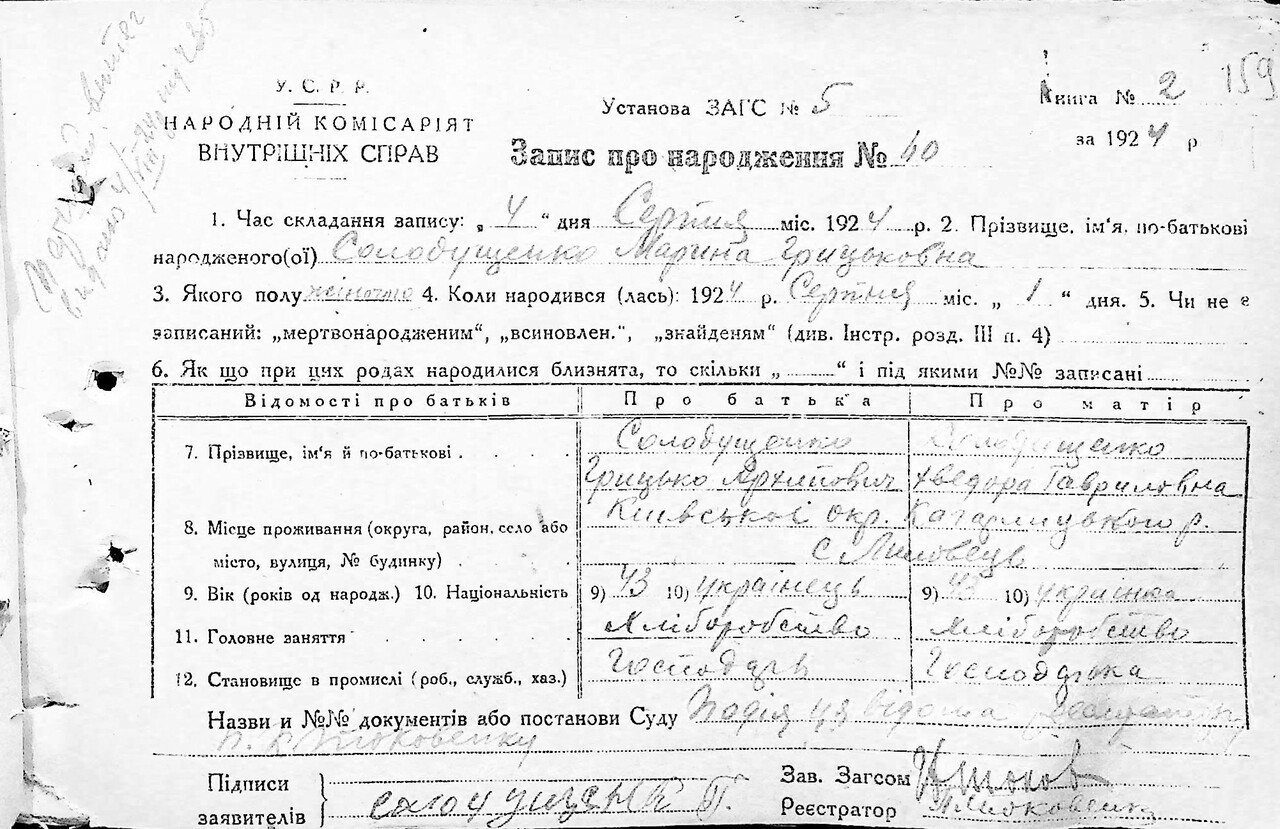 У. С. Р. Р.
НАРОДНІЙ КОМІСАРІЯТ
ВНУТРІШНІХ СПРАВ
Установа ЗАГС № 5
Книга № 2 159
за 1924 р
Запис про народження № 40
1. Час складання запису: „ 4 “ дня Серпня міс. 1924 р. 2. Прізвище, ім'я, по-батькові
народженого(ої) Солодущенко Марина Грицьковна
3. Якого полу жіночто 4. Коли народився (лась): 1924 р. Серпня міс. „ 1 “ дня. 5. Чи не є
записаний: „мертвонародженим“, „всиновлен.“, „знайденям“ (див. Інстр. розд. III п. 4)
6. Як що при цих родах народилися близнята, то скільки „ “ і під якими №№ записані
Відомості про батьків Про батька Про матір
7. Прізвище, ім'я й по-батькові Солодущенко Солодущенко
Грицько Архипович Хведора Гавриловна
8. Місце проживання (округа, район, село або Київської окр. Кагарлицького р.
місто, вулиця, № будинку) с.
9. Вік (років од народж.) 10. Національність 9) 43 10) українець 9) 43 10) українка
11. Головне заняття Хліборобство Хліборобство
12. Становище в промислі (роб., служб., хаз.) Господарь Господарка
Назви и №№ документів або постанови Суду Подія відома
Підписи
заявителів
Зав. Загсом
Реєстратор